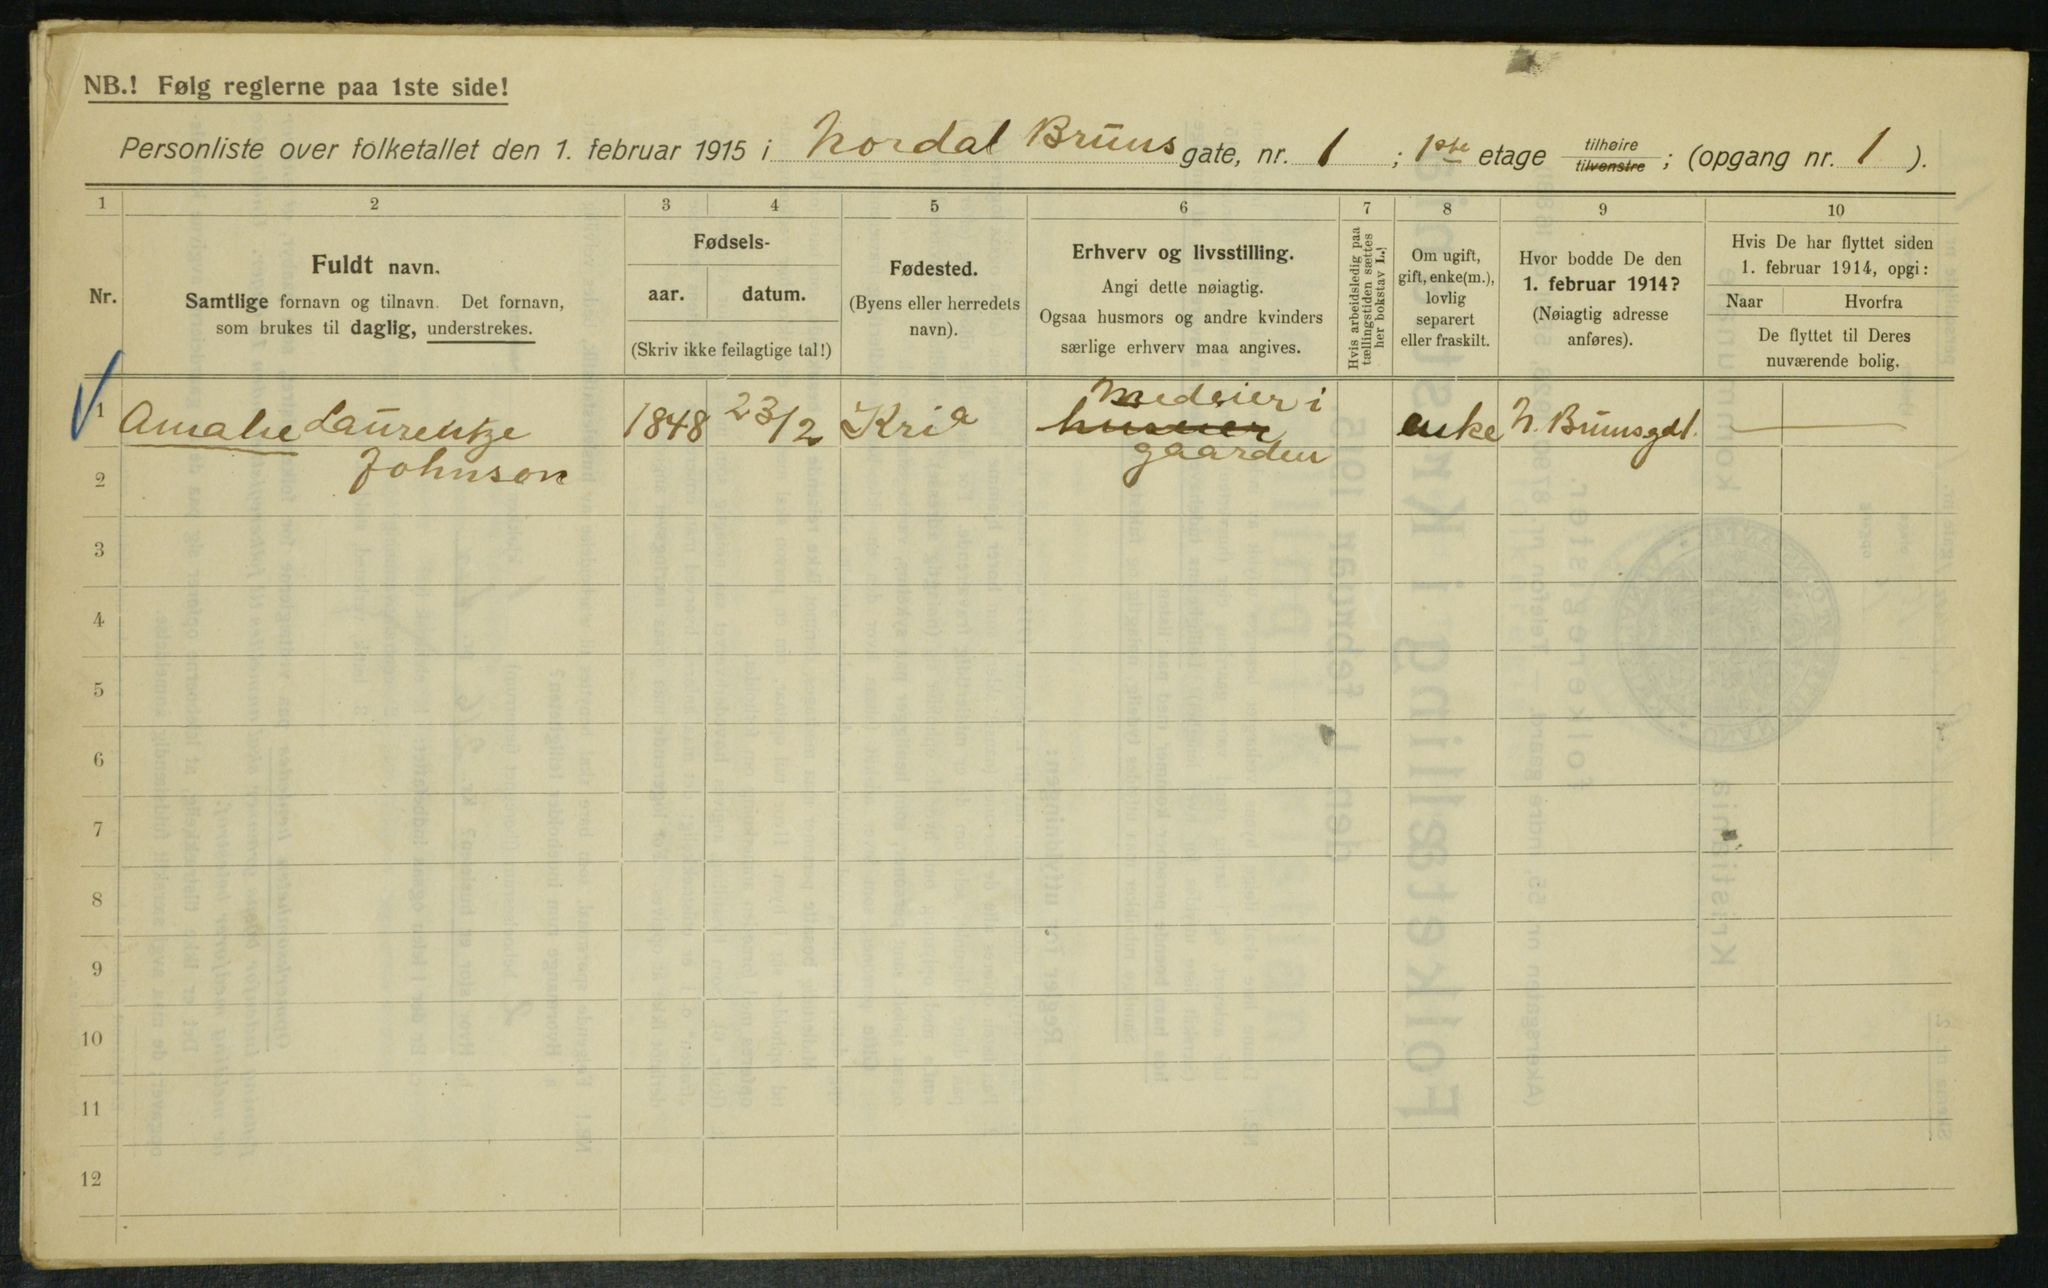 NB.! Følg reglerne paa 1ste side!
Personliste over folketallet den 1. februar 1915 i Nordal Bruns gate, nr. 1 ; 1ste etage tilhøire tilvenstre ; (opgang nr. 1 ).
1 2 3 4 5 6 7 8 9 10
Nr.
Fuldt navn.
Samtlige fornavn og tilnavn. Det fornavn,
som brukes til daglig, understrekes.
Fødsels-
aar. datum.
(Skriv ikke feilagtige tal!)
Fødested.
(Byens eller herredets
navn).
Erhverv og livsstilling.
Angi dette nøiagtig.
Ogsaa husmors og andre kvinders
særlige erhverv maa angives.
Hvis arbeidsledig paa
tællingstiden sættes
her bokstav L.!
Om ugift,
gift, enke(m.),
lovlig
separert
eller fraskilt.
Hvor bodde De den
1. februar 1914?
(Nøiagtig adresse
anføres).
Hvis De har flyttet siden
1. februar 1914, opgi:
Naar Hvorfra
De flyttet til Deres
nuværende bolig.
1 Amalie Laurentze 1848 23/2 Kria Medeier i enke N. Brunsgt 1.
Johnson gaarden
2
3
4
5
6
7
8
9
10
11
12